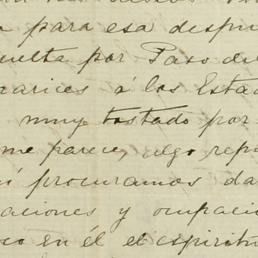 para esa despu
uelta por Paso de
arices á los Estad
muy tostado por
me parece, algo repu
procuramos da
aciones y ocupaci
oco en él el espiritu